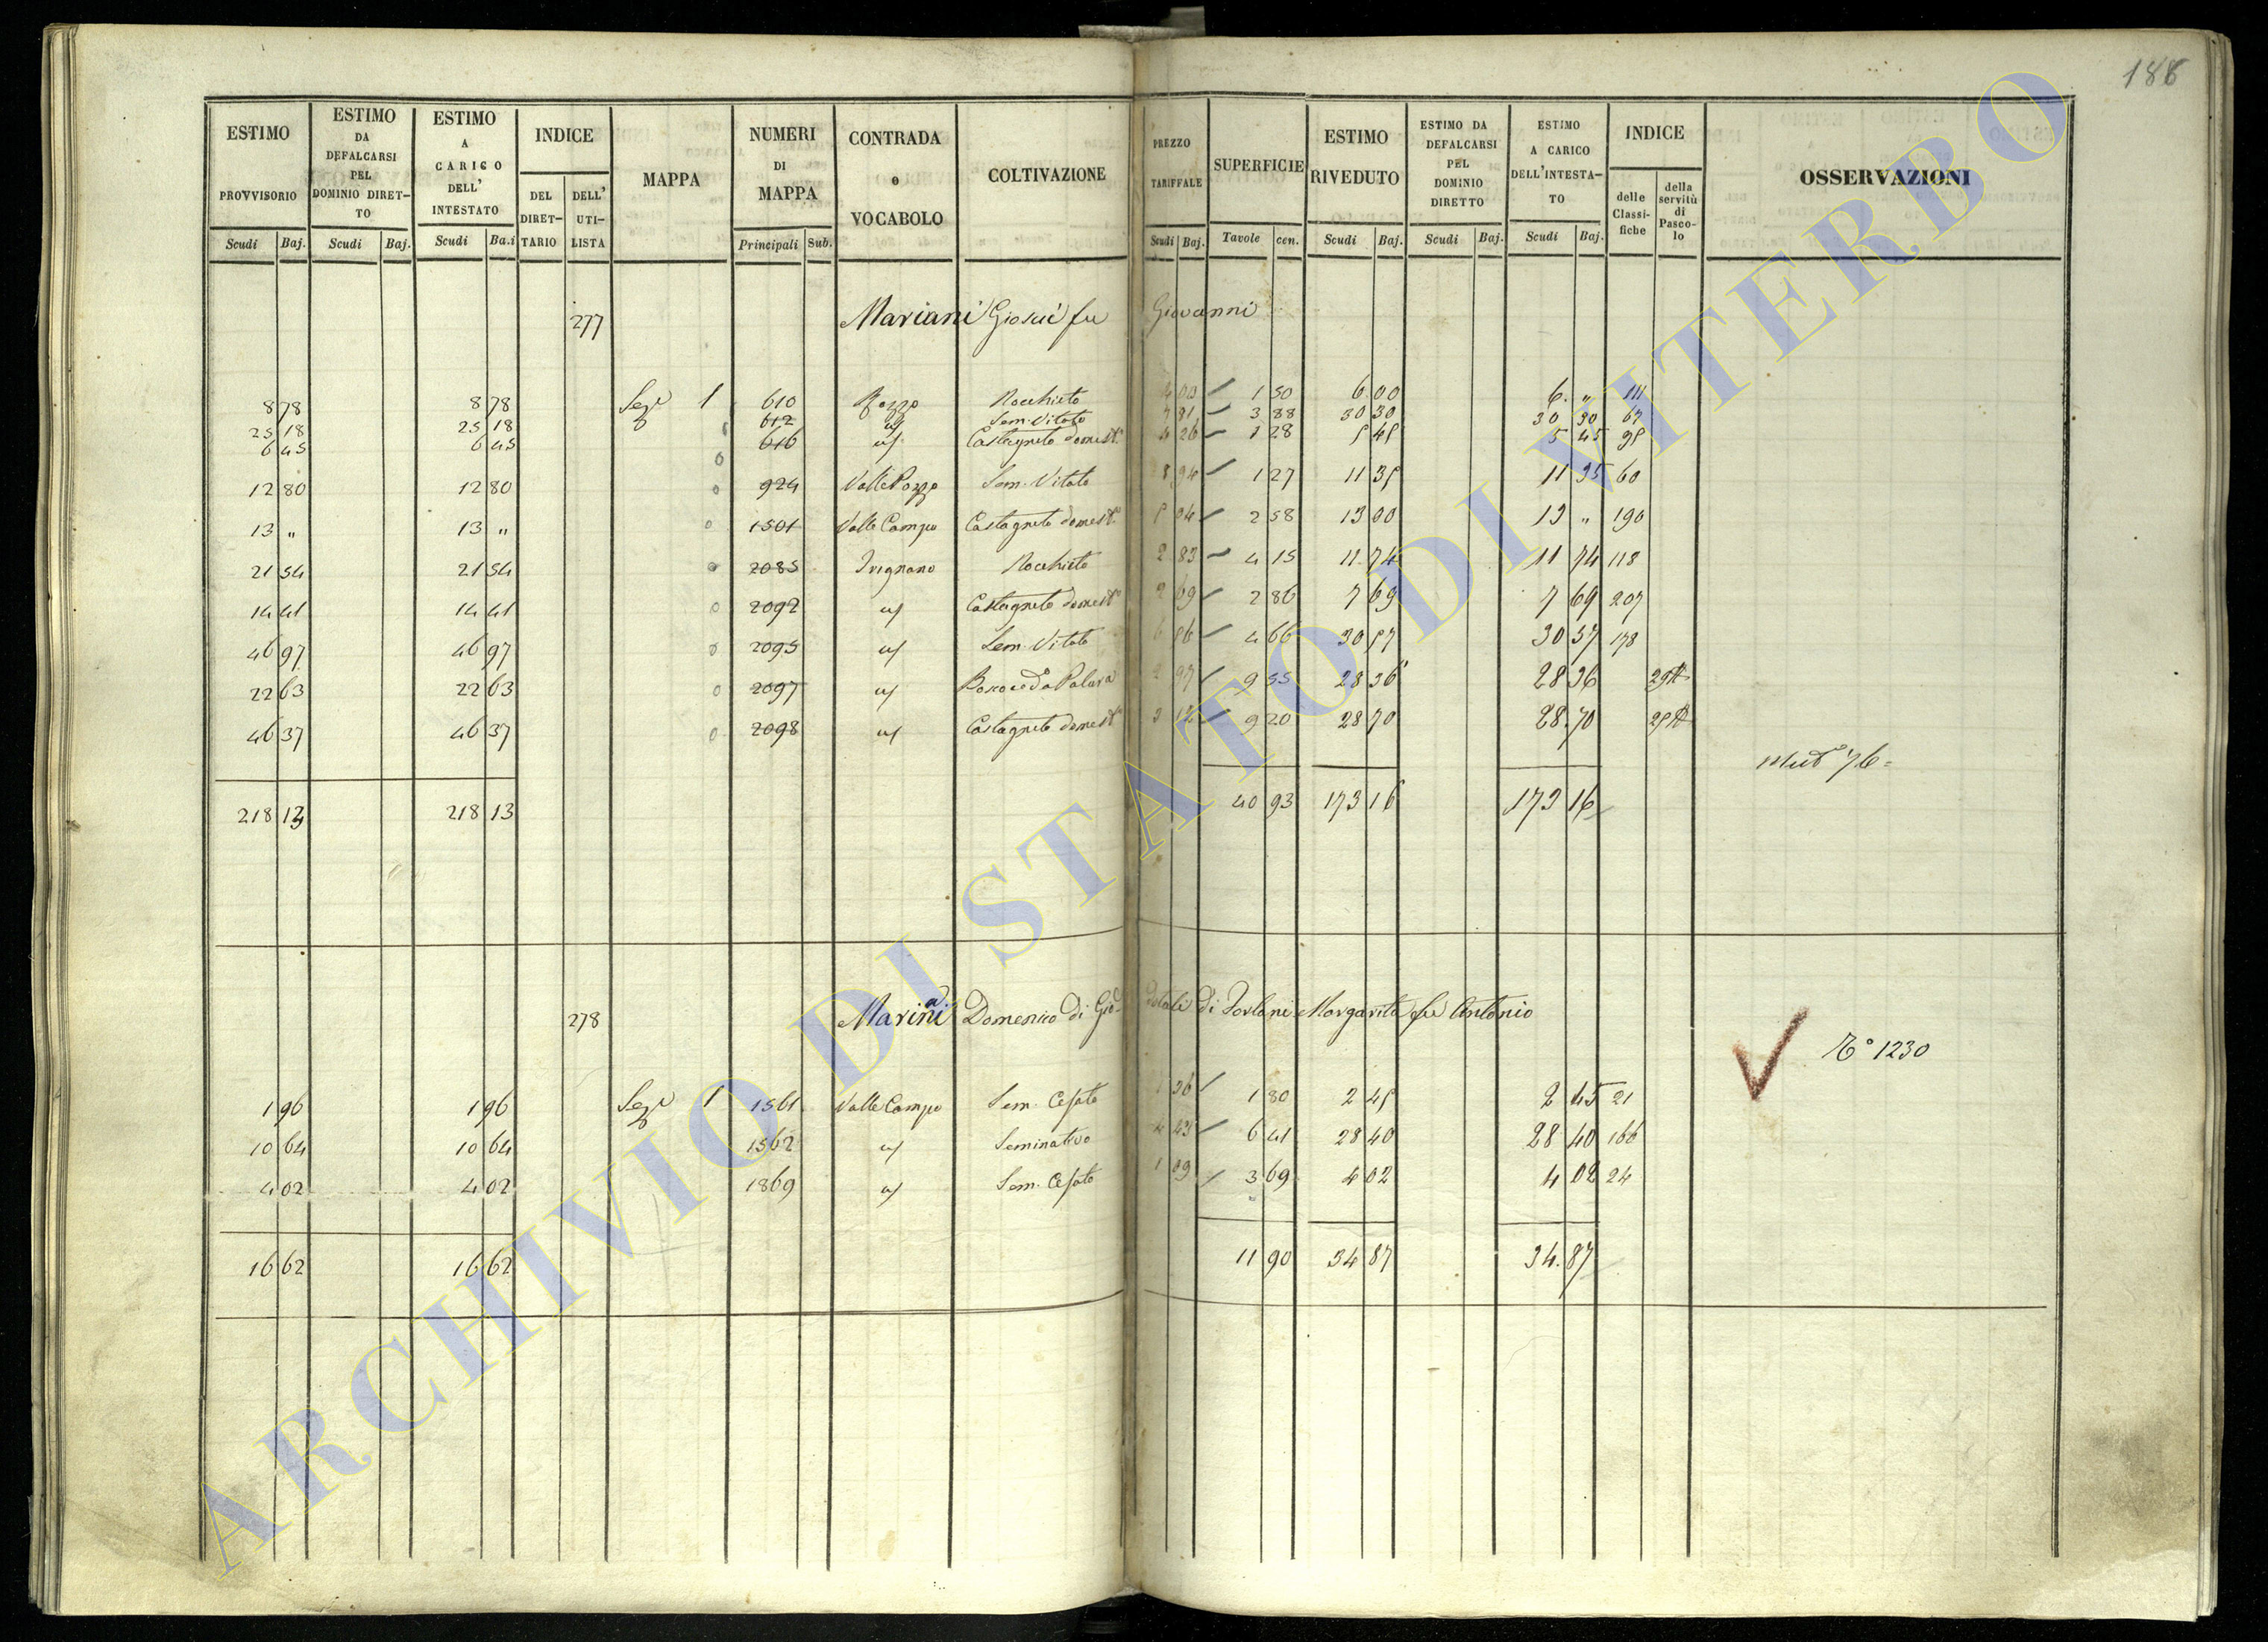 188
ESTIMO PROVVISORIO Scudi Baj. | ESTIMO DA DEFALCARSI PEL DOMINIO DIRET-TO Scudi Baj. | ESTIMO A CARICO DELL' INTESTATO Scudi Ba.i | INDICE DEL DIRET-TARIO | DELL' UTI-LISTA | MAPPA | NUMERI DI MAPPA Principali Sub. | CONTRADA o VOCABOLO | COLTIVAZIONE | PREZZO TARIFFALE Scudi Baj. | SUPERFICIE Tavole cen. | ESTIMO RIVEDUTO Scudi Baj. | ESTIMO DA DEFALCARSI PEL DOMINIO DIRETTO Scudi Baj. | ESTIMO A CARICO DELL'INTESTA-TO Scudi Baj. | INDICE delle Classi-fiche | della servitù di Pasco-lo | OSSERVAZIONI
277 Mariani Giosuè fu Giovanni
8 78 | 8 78 | Sez.e 1 | 610 | Pozzo | Rocchieto | 4 00 | 1 50 | 6 00 | 6 „ | 111
25 18 | 25 18 | 612 | c/ | Sem. Vitato | 7 81 | 3 88 | 30 30 | 30 30 | 67
6 45 | 6 45 | 616 | c/ | Castagneto domest.o | 4 26 | 1 28 | 5 45 | 5 45 | 95
12 80 | 12 80 | 924 | Valle Pozzo | Sem. Vitato | 8 94 | 1 27 | 11 35 | 11 35 | 60
13 „ | 13 „ | 1501 | Valle Campo | Castagneto domest.o | 5 04 | 2 58 | 13 00 | 13 „ | 190
21 54 | 21 54 | 2085 | Irignano | Rocchieto | 2 83 | 4 15 | 11 74 | 11 74 | 118
14 41 | 14 41 | 2092 | c/ | Castagneto domest.o | 2 69 | 2 86 | 7 69 | 7 69 | 207
46 97 | 46 97 | 2095 | c/ | Sem. Vitato | 6 56 | 4 66 | 30 57 | 30 57 | 178
22 63 | 22 63 | 2097 | c/ | Bosco ed Palara | 2 97 | 9 55 | 28 36 | 28 36
46 37 | 46 37 | 2098 | c/ | Castagneto domest.o | 3 12 | 9 20 | 28 70 | 28.70
76
218 13 | 218 13 | 40 93 | 173 16 | 173 16
278 Mariani Domenico di Gio. dotali di Forlani Margarita fu Antonio
T.° 1230
1 96 | 1 96 | Sez.e 1 | 1561 | Valle Campo | Sem. Cesato | 1 36 | 1 80 | 2 45 | 2 45 | 21
10 64 | 10 64 | 1562 | c/ | Seminativo | 4 43 | 6 41 | 28 40 | 28 40 | 166
4 02 | 4 02 | 1869 | c/ | Sem. Cesato | 1 09 | 3 69 | 4 02 | 4 02 | 24
16 62 | 16 62 | 11 90 | 34 87 | 34.87
ARCHIVIO DI STATO DI VITERBO